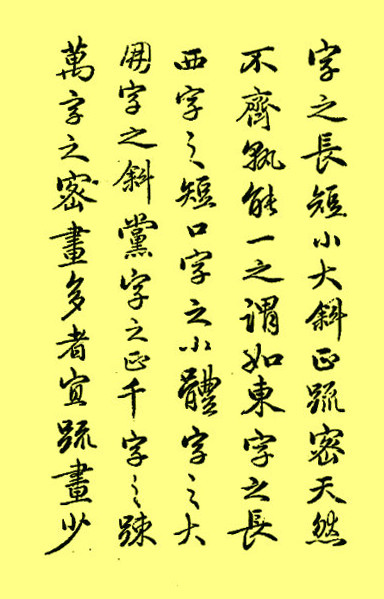 字之長短小大斜正疏密天然
不齊孰能一之謂如東字之長
西字之短口字之小體字之大
朋字之斜黨字之正千字之疎
萬字之密畫多者宜疏畫少